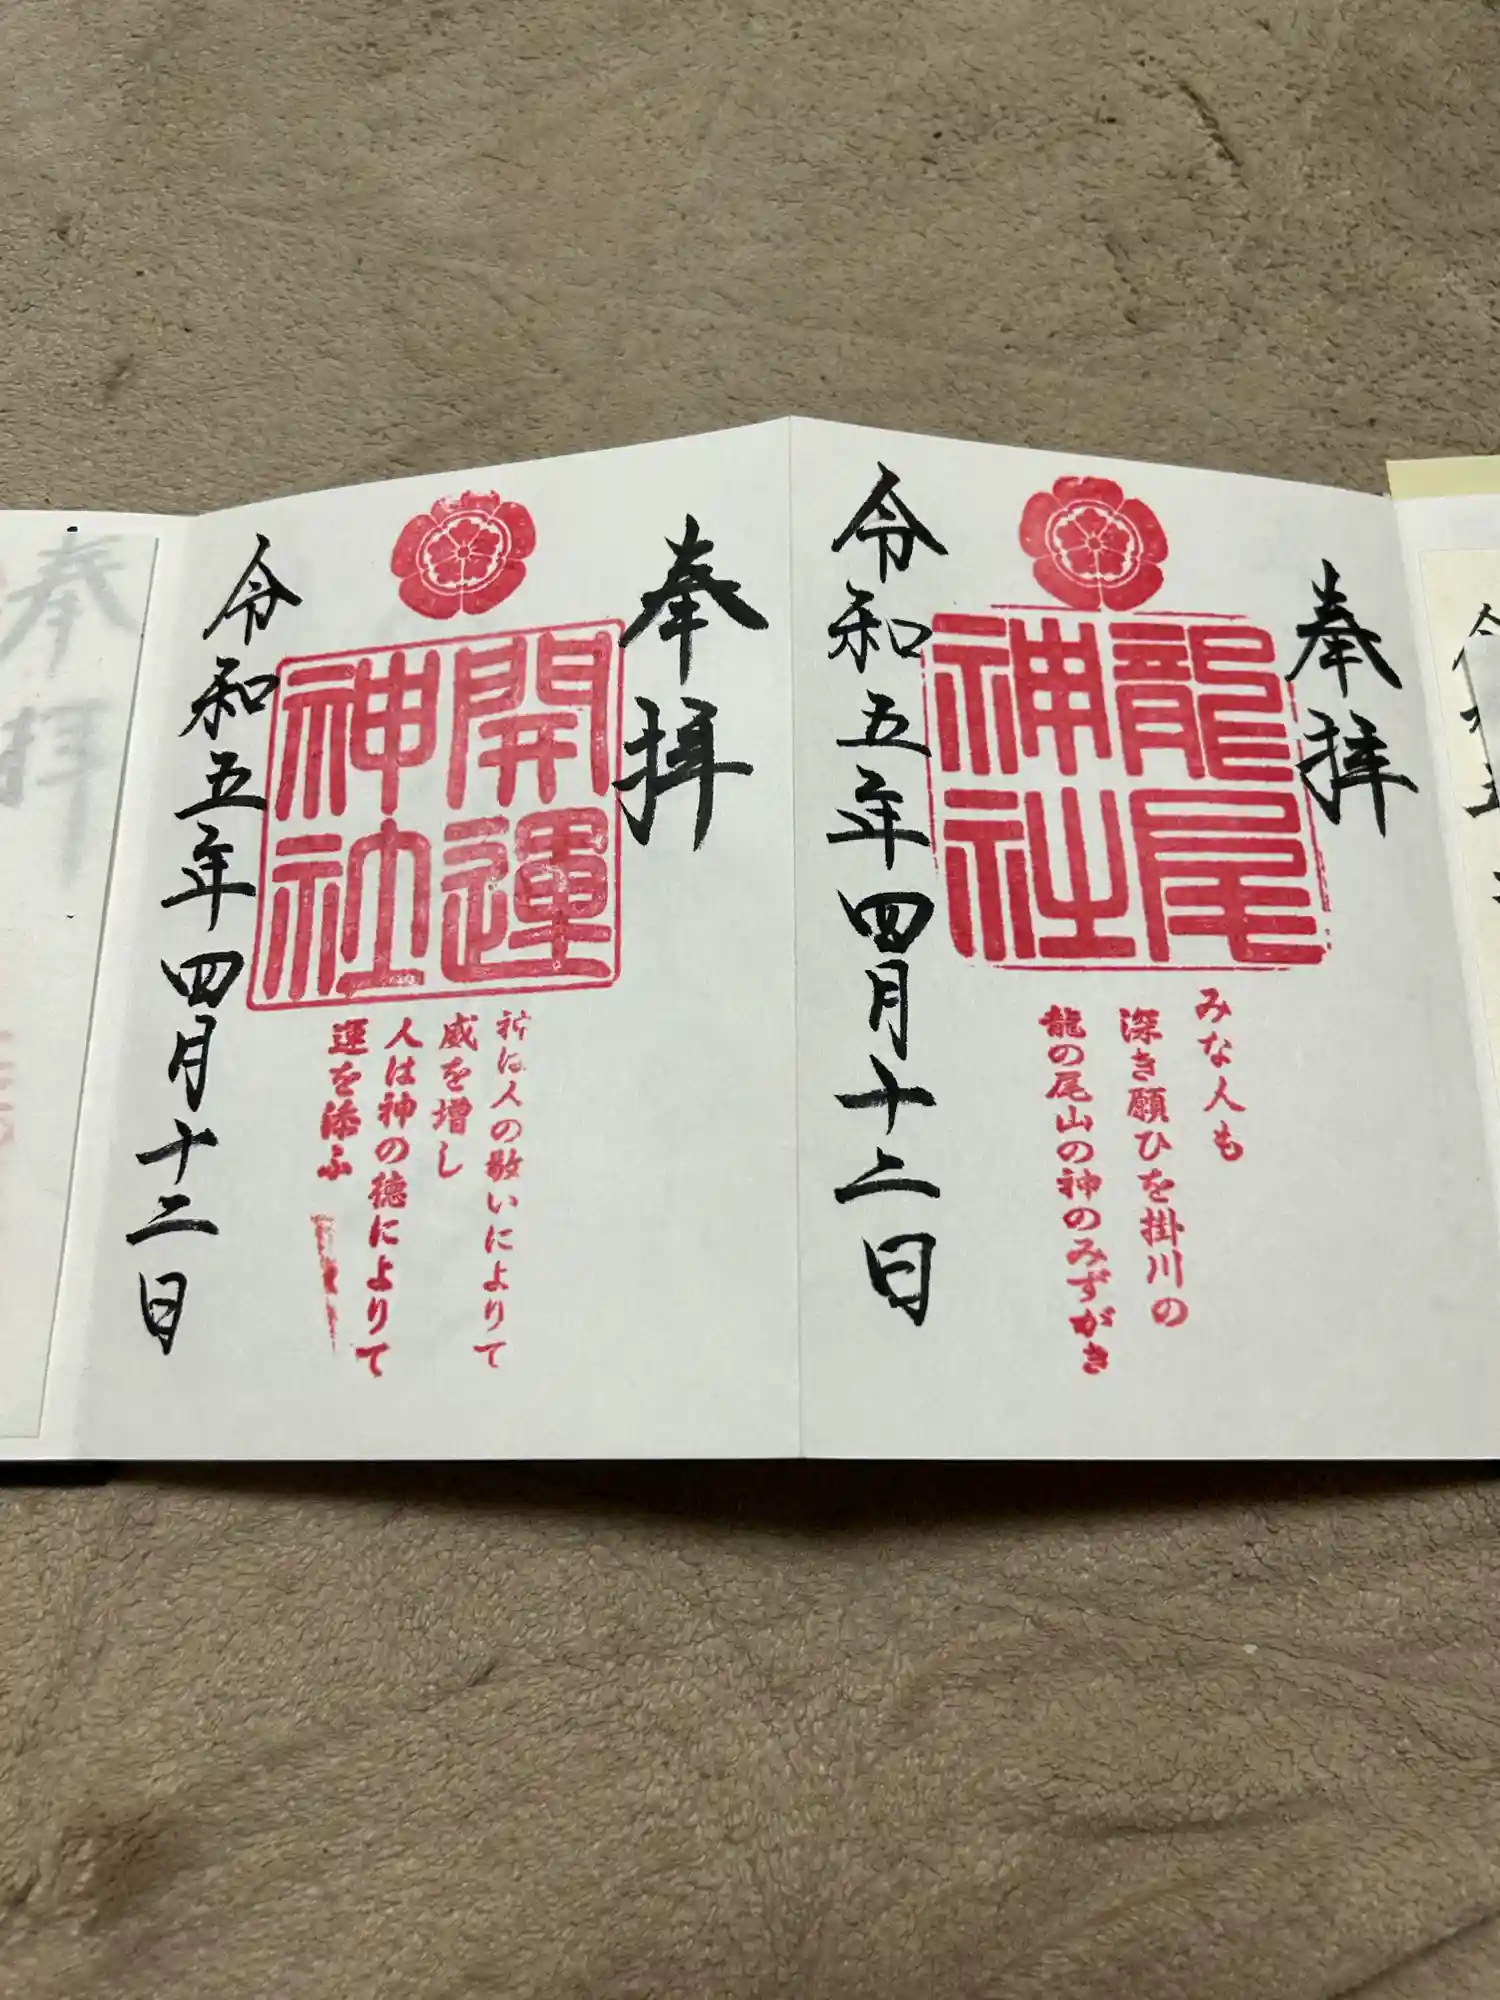 奉拝
龍尾
神社
令和五年四月十二日
みな人も
深き願ひを掛川の
龍の尾山の神のみずがき
奉拝
開運
神社
令和五年四月十二日
神は人の敬いによりて
威を増し
人は神の徳によりて
運を添ふ
奉拝